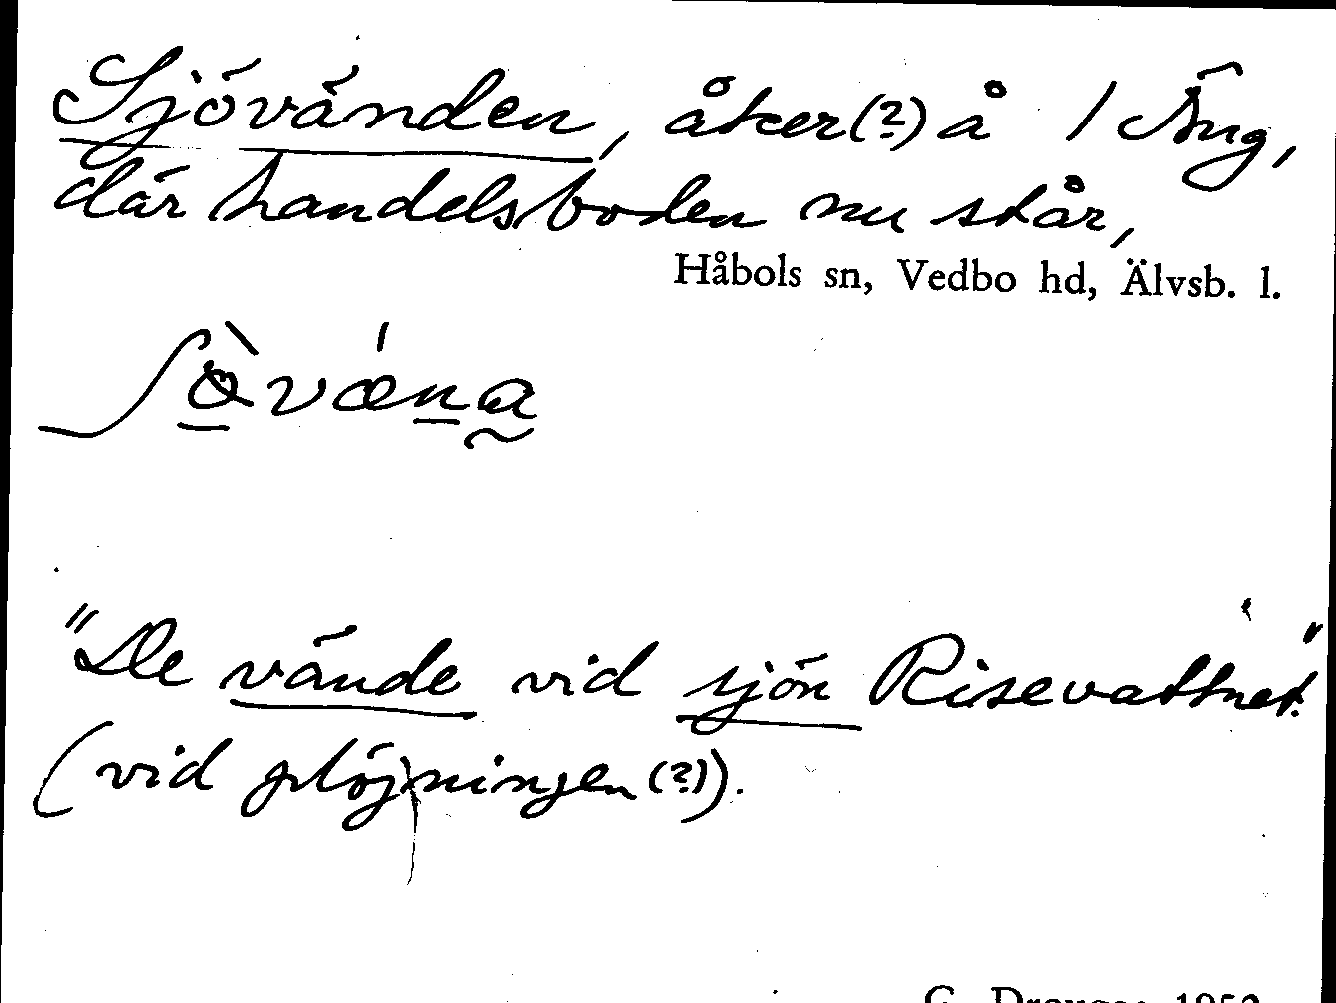 Sjövänden, åker(?) å 1 Äng,
där handelsboden nu står,
Håbols sn, Vedbo hd, Älvsb. l.
"De vände vid sjön Risevattnet."
(vid plöjningen(?)).